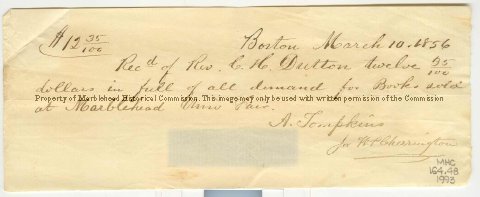 $12 35/100
Boston March 10. 1856
Recd of Rev. C. H. Dutton twelve 35/100
dollars in full of all demand for Books sold
Property of Marblehead Historical Commission. This image may only be used with written permission of the Commission.
at Marblehead Univ Fair.
A. Tompkins
for
MHC
164.48
1993